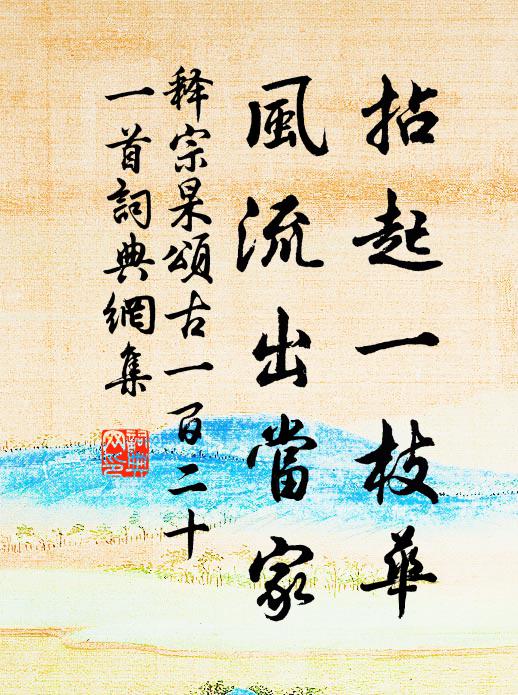 拈起一枝華
風流出當家
释宗杲頌古一百二十
一首詞典網集